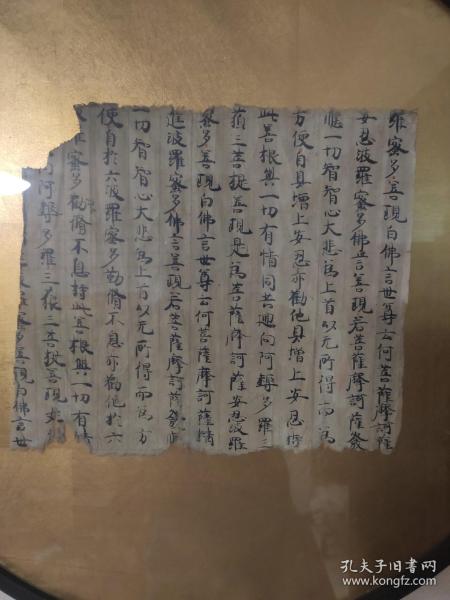 羅蜜多善現白佛言世尊云何菩薩摩訶薩
安忍波羅蜜多佛言善現若菩薩摩訶薩發
應一切智智心大悲為上首以无所得而為
方便自具增上安忍亦勸他具增上安忍持
此善根與一切有情同共迴向阿耨多羅三
藐三菩提善現是為菩薩摩訶薩安忍波羅
蜜多善現白佛言世尊云何菩薩摩訶薩精
進波羅蜜多佛言善現若菩薩摩訶薩發應
一切智智心大悲為上首以无所得而為方
便自於六波羅蜜多勤脩不息亦勸他於六
羅蜜多勤脩不息持此善根與一切有情
阿耨多羅三藐三菩提善現是
羅蜜多善現白佛言世
孔夫子旧书网
www.kongfz.com